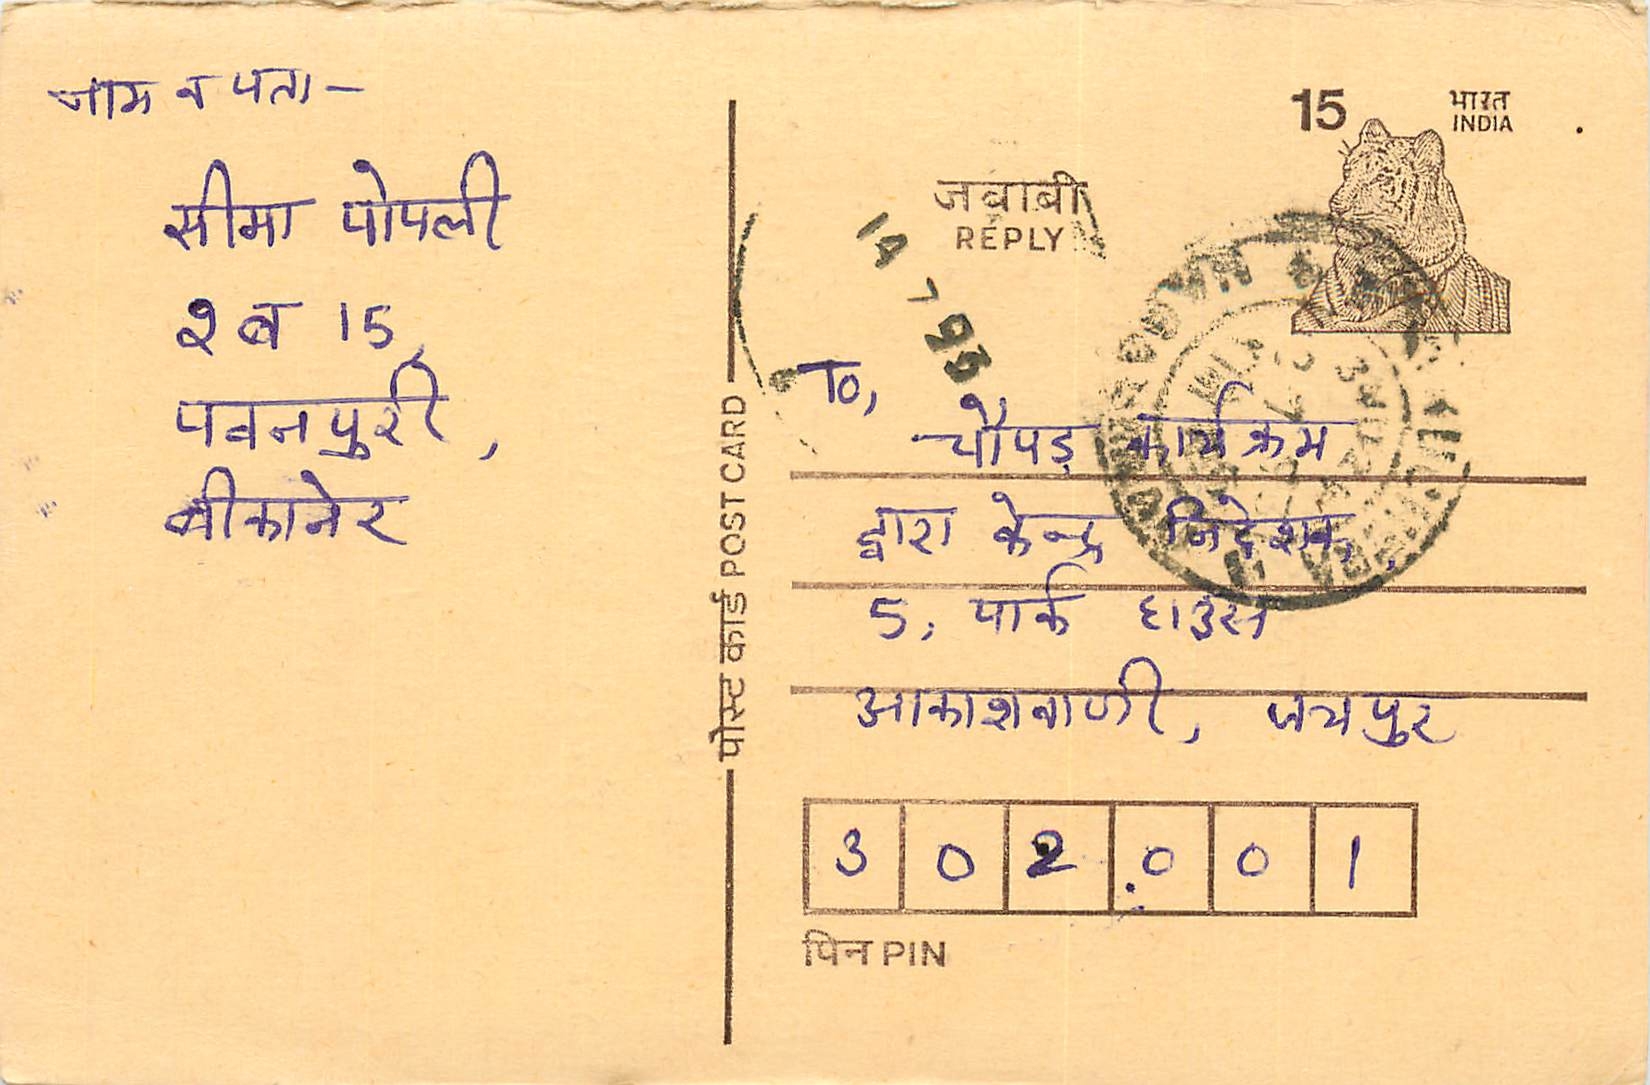 नाम व पता -
सीमा पोपली
२ ब 15,
पवनपुरी,
बीकानेर
पोस्ट कार्ड POST CARD
15
भारत
INDIA
जवाबी
REPLY
14 7 93
To,
चौपड़ कार्यक्रम
द्वारा केन्द्र निदेशक,
5, पार्क हाउस
आकाशवाणी, जयपुर
3 0 2 0 0 1
पिन PIN